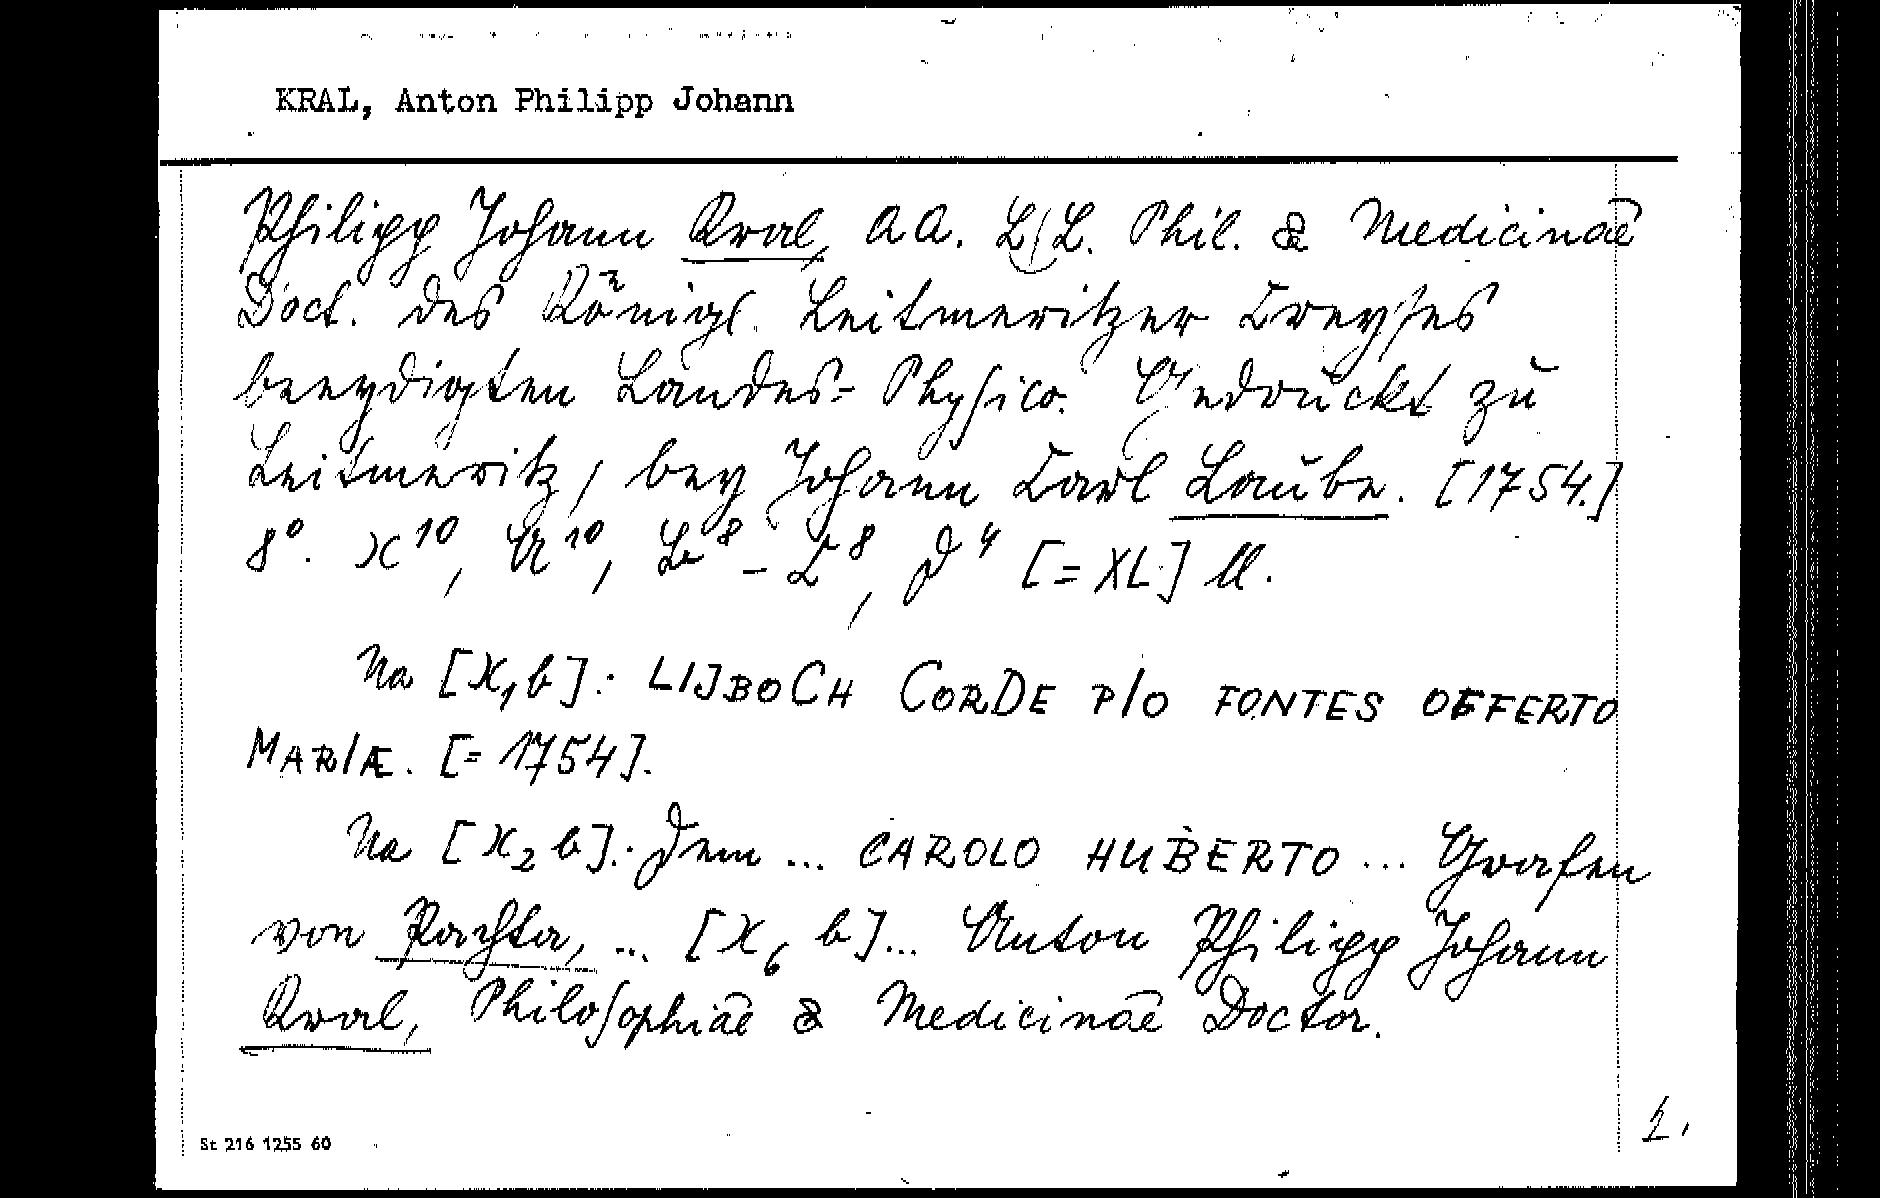 KRAL, Anton Philipp Johann
Philipp Johann Kral, AA. LL. Phil. & Medicinae
Doct. des Königl. Leitmeritzer Creyses
beeydigten Landes-Physico. Gedruckt zu
Leitmeritz, bey Johann Carl Laube. [1754.]
8°. X¹⁰, A¹⁰, B⁸ – C⁸, D⁴ [= XL] ll.
Na [X₁b]: LIJBOCH CORDE PIO FONTES OFFERTO
MARIÆ. [= 1754].
Na [X₂b]: Dem ... CAROLO HUBERTO ... Grafen
von Pachta, ... [X₆ b] ... Anton Philipp Johann
Kral, Philosophiae & Medicinae Doctor.
St 216 1255 60
2.